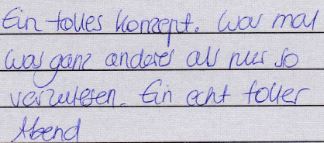 Ein tolles Konzept. War mal
was ganz anderes als nur so
vorzulesen. Ein echt toller
Abend